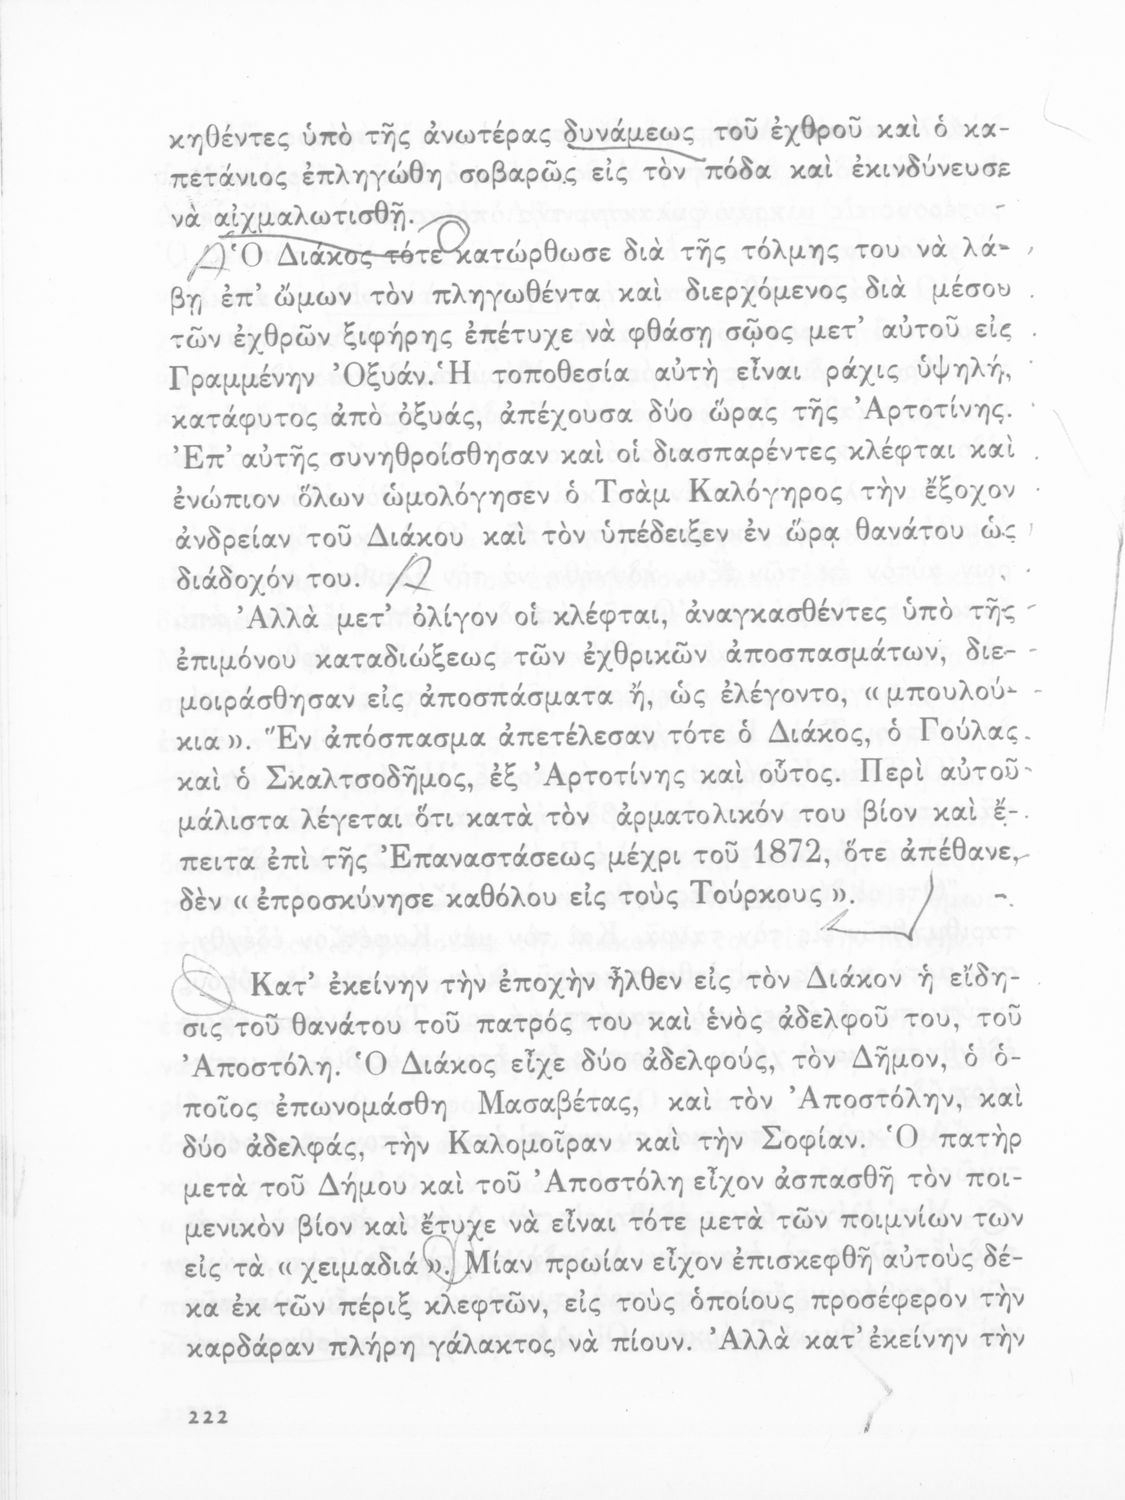 κηθέντες ὑπὸ τῆς ἀνωτέρας δυνάμεως τοῦ ἐχθροῦ καὶ ὁ κα-
πετάνιος ἐπληγώθη σοβαρῶς εἰς τὸν πόδα καὶ ἐκινδύνευσε
νὰ αἰχμαλωτισθῇ.
Ὁ Διάκος τότε κατώρθωσε διὰ τῆς τόλμης του νὰ λά-
βῃ ἐπ’ ὤμων τὸν πληγωθέντα καὶ διερχόμενος διὰ μέσου
τῶν ἐχθρῶν ξιφήρης ἐπέτυχε νὰ φθάσῃ σῷος μετ’ αὐτοῦ εἰς
Γραμμένην Ὀξυάν. Ἡ τοποθεσία αὐτὴ εἶναι ράχις ὑψηλή,
κατάφυτος ἀπὸ ὀξυάς, ἀπέχουσα δύο ὥρας τῆς Ἀρτοτίνης.
Ἐπ’ αὐτῆς συνηθροίσθησαν καὶ οἱ διασπαρέντες κλέφται καὶ
ἐνώπιον ὅλων ὡμολόγησεν ὁ Τσὰμ Καλόγηρος τὴν ἔξοχον
ἀνδρείαν τοῦ Διάκου καὶ τὸν ὑπέδειξεν ἐν ὥρᾳ θανάτου ὡς
διάδοχόν του.
Ἀλλὰ μετ’ ὀλίγον οἱ κλέφται, ἀναγκασθέντες ὑπὸ τῆς
ἐπιμόνου καταδιώξεως τῶν ἐχθρικῶν ἀποσπασμάτων, διε-
μοιράσθησαν εἰς ἀποσπάσματα ἤ, ὡς ἐλέγοντο, « μπουλού-
κια ». Ἓν ἀπόσπασμα ἀπετέλεσαν τότε ὁ Διάκος, ὁ Γούλας
καὶ ὁ Σκαλτσοδῆμος, ἐξ Ἀρτοτίνης καὶ οὗτος. Περὶ αὐτοῦ
μάλιστα λέγεται ὅτι κατὰ τὸν ἀρματολικόν του βίον καὶ ἔ-
πειτα ἐπὶ τῆς Ἐπαναστάσεως μέχρι τοῦ 1872, ὅτε ἀπέθανε,
δὲν « ἐπροσκύνησε καθόλου εἰς τοὺς Τούρκους ».
Κατ’ ἐκείνην τὴν ἐποχὴν ἦλθεν εἰς τὸν Διάκον ἡ εἴδη-
σις τοῦ θανάτου τοῦ πατρός του καὶ ἑνὸς ἀδελφοῦ του, τοῦ
Ἀποστόλη. Ὁ Διάκος εἶχε δύο ἀδελφούς, τὸν Δῆμον, ὁ ὁ-
ποῖος ἐπωνομάσθη Μασαβέτας, καὶ τὸν Ἀποστόλην, καὶ
δύο ἀδελφάς, τὴν Καλομοῖραν καὶ τὴν Σοφίαν. Ὁ πατὴρ
μετὰ τοῦ Δήμου καὶ τοῦ Ἀποστόλη εἶχον ἀσπασθῆ τὸν ποι-
μενικὸν βίον καὶ ἔτυχε νὰ εἶναι τότε μετὰ τῶν ποιμνίων των
εἰς τὰ « χειμαδιά ». Μίαν πρωίαν εἶχον ἐπισκεφθῆ αὐτοὺς δέ-
κα ἐκ τῶν πέριξ κλεφτῶν, εἰς τοὺς ὁποίους προσέφερον τὴν
καρδάραν πλήρη γάλακτος νὰ πίουν. Ἀλλὰ κατ’ ἐκείνην τὴν
222